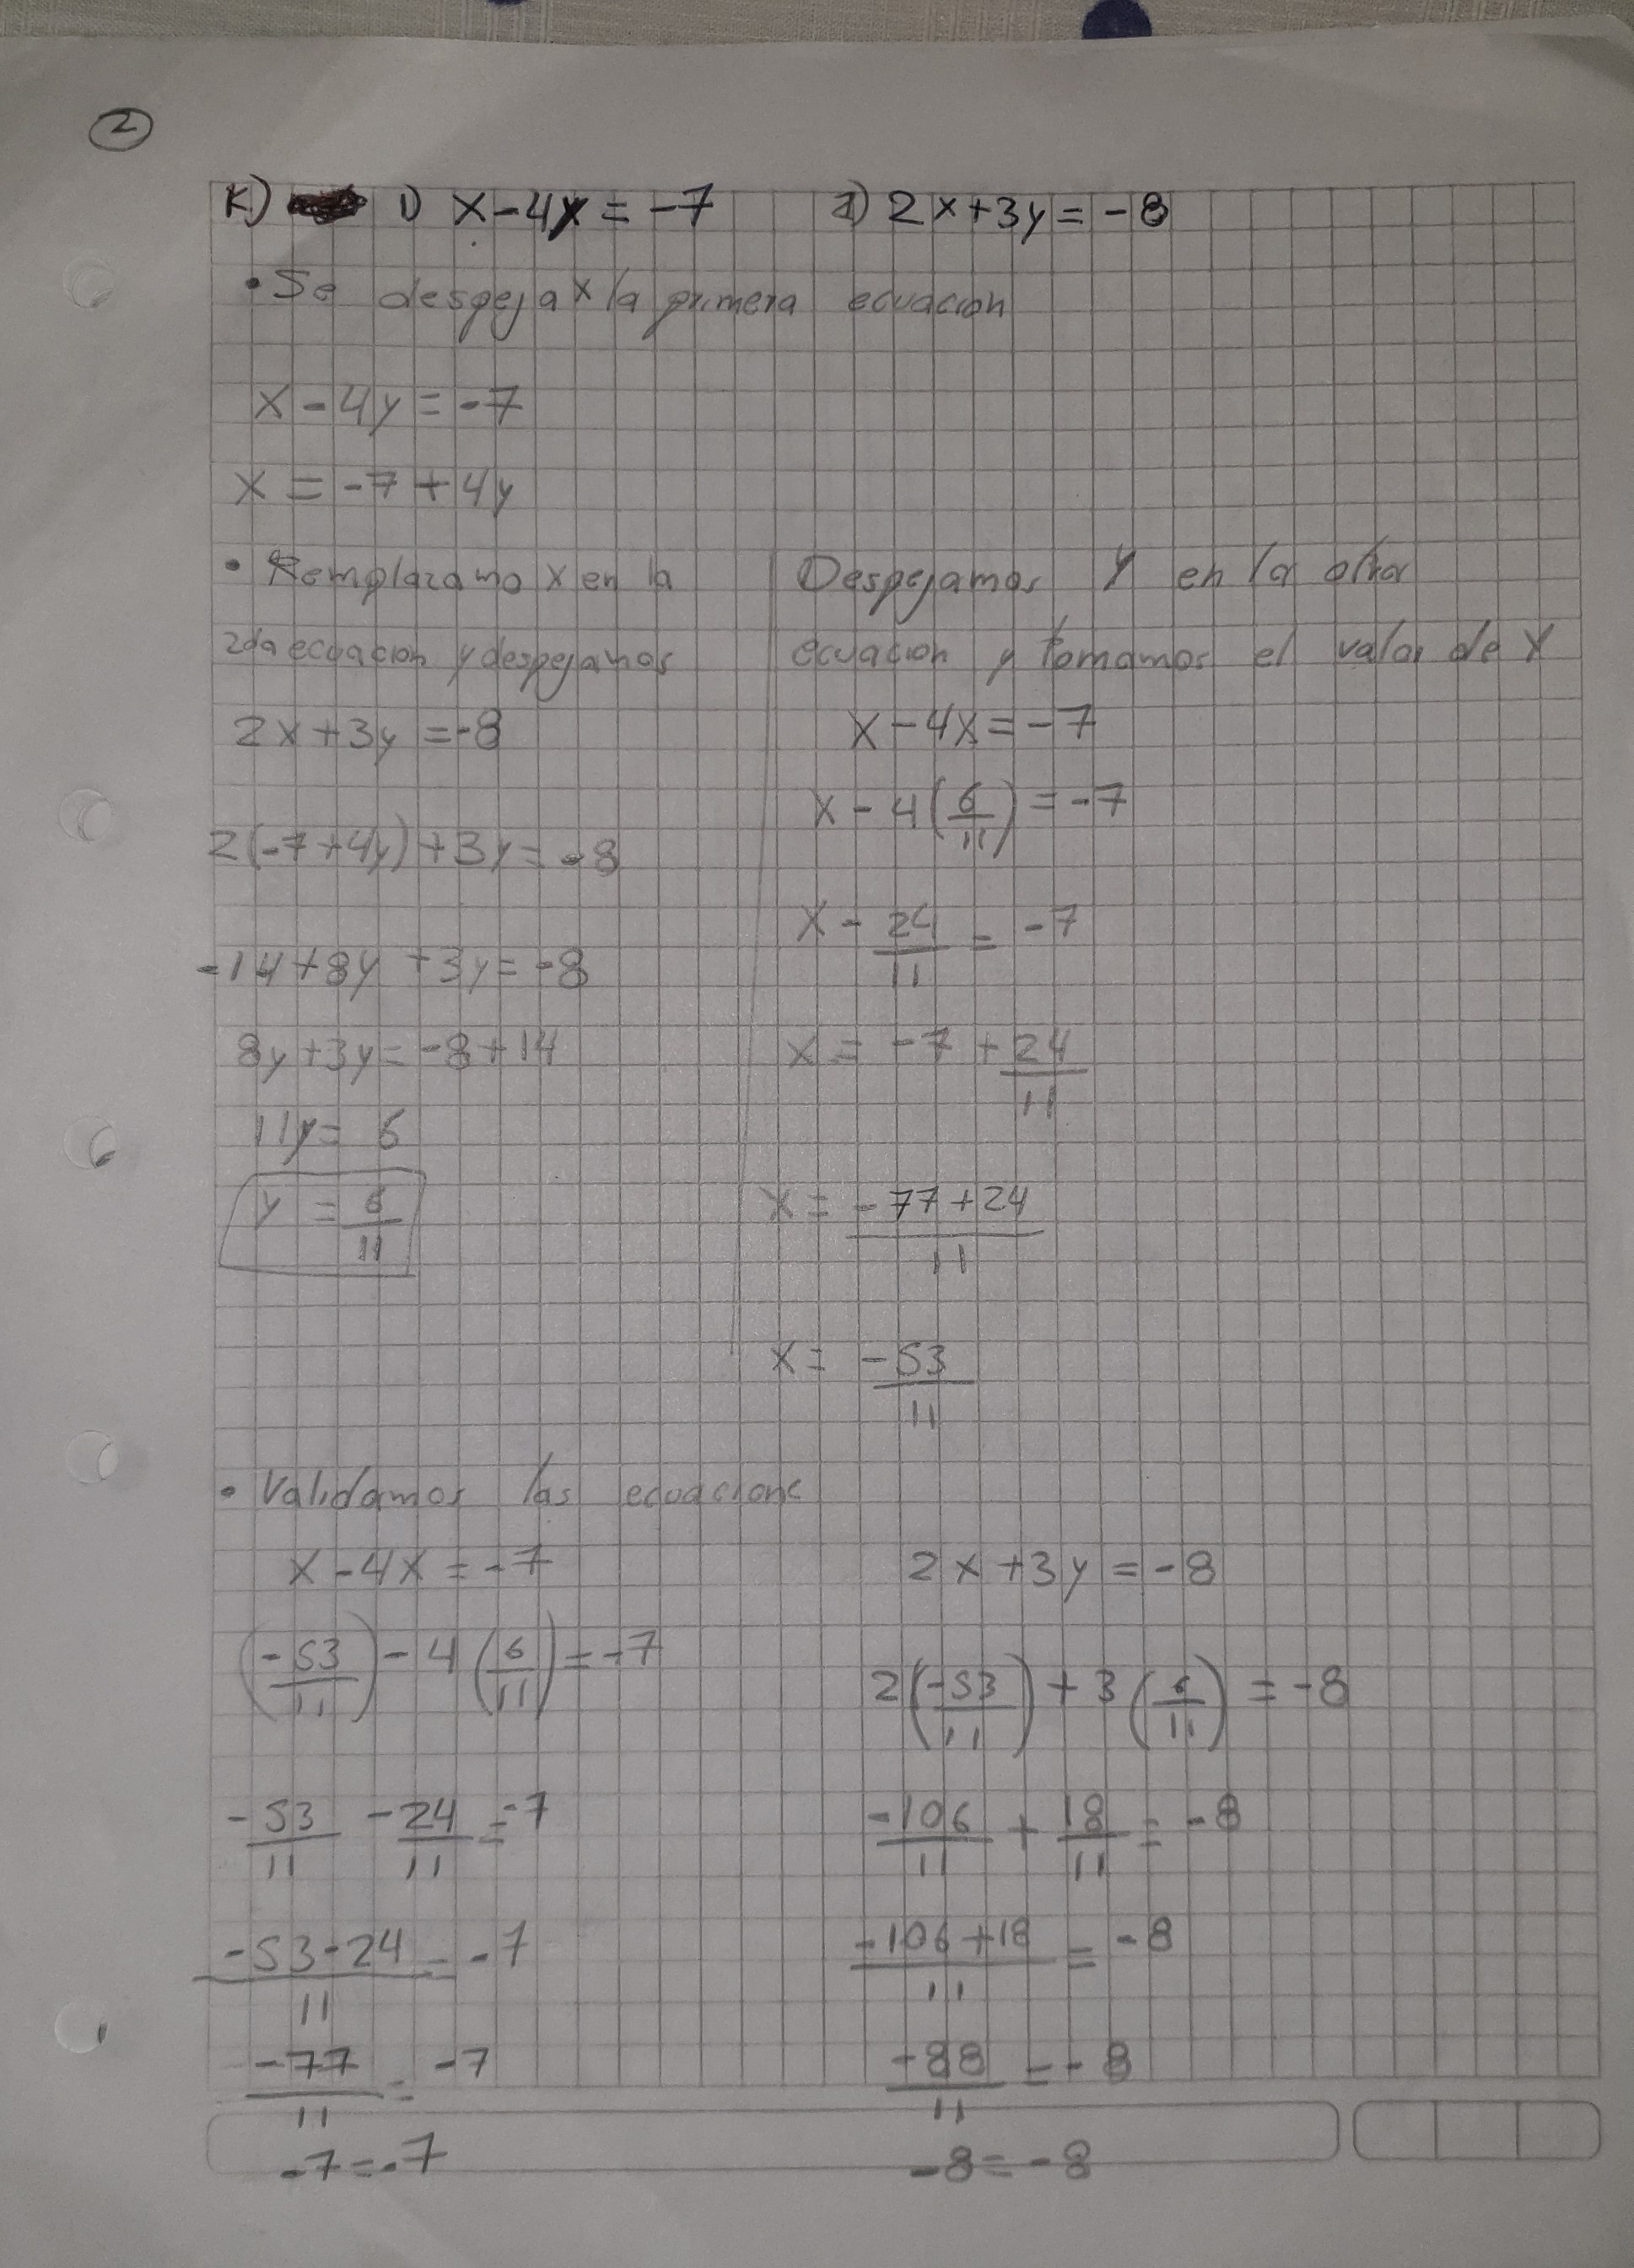 2
K) 1) x-4y = -7 2) 2x+3y = -8
• Se despeja x la primera ecuacion
x-4y = -7
x = -7+4y
• Remplazamo x en la
2da ecuacion y despejamos
2x+3y = -8
2(-7+4y)+3y = -8
-14+8y +3y = -8
8y+3y = -8+14
11y = 6
y = 6/11
Despejamos Y en la otra
ecuacion y tomamos el valor de Y
x-4x = -7
x-4(6/11) = -7
x - 24/11 = -7
x = -7 + 24/11
x = -77+24/11
x = -53/11
• Validamos las ecuacione
x-4x = -7
(-53/11) - 4(6/11) = -7
-53/11 - 24/11 = -7
-53-24/11 = -7
-77/11 = -7
-7 = -7
2x+3y = -8
2(-53/11) + 3(6/11) = -8
-106/11 + 18/11 = -8
-106+18/11 = -8
-88/11 = -8
-8 = -8